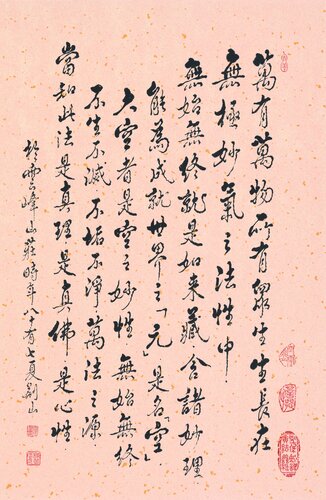 萬有萬物所有眾生生長在
無極妙氣之法性中
無始無終就是如来藏含諸妙理
能為成就世界之「元」是名「空」
大空者是空之妙性無始無終
不生不滅不垢不淨萬法之源
當知此法是真理是真佛是心性
於雲峰山莊時年八十有七夏劍山